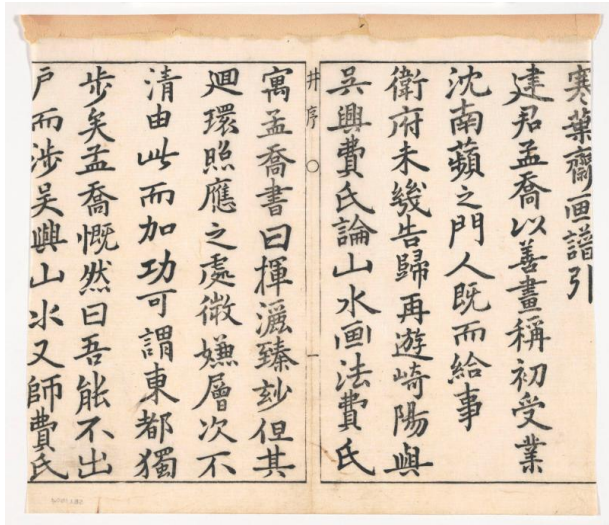 寒葉齋画譜引
建君孟喬以善畫稱初受業
沈南蘋之門人既而給事
衛府未幾告歸再遊崎陽與
吳興費氏論山水画法費氏
井序 ○ 一
寓孟喬書曰揮灑臻玅但其
迴環照應之處微嫌層次不
清由此而加功可謂東都獨
步矣孟喬慨然曰吾能不出
戶而涉吳興山水又師費氏